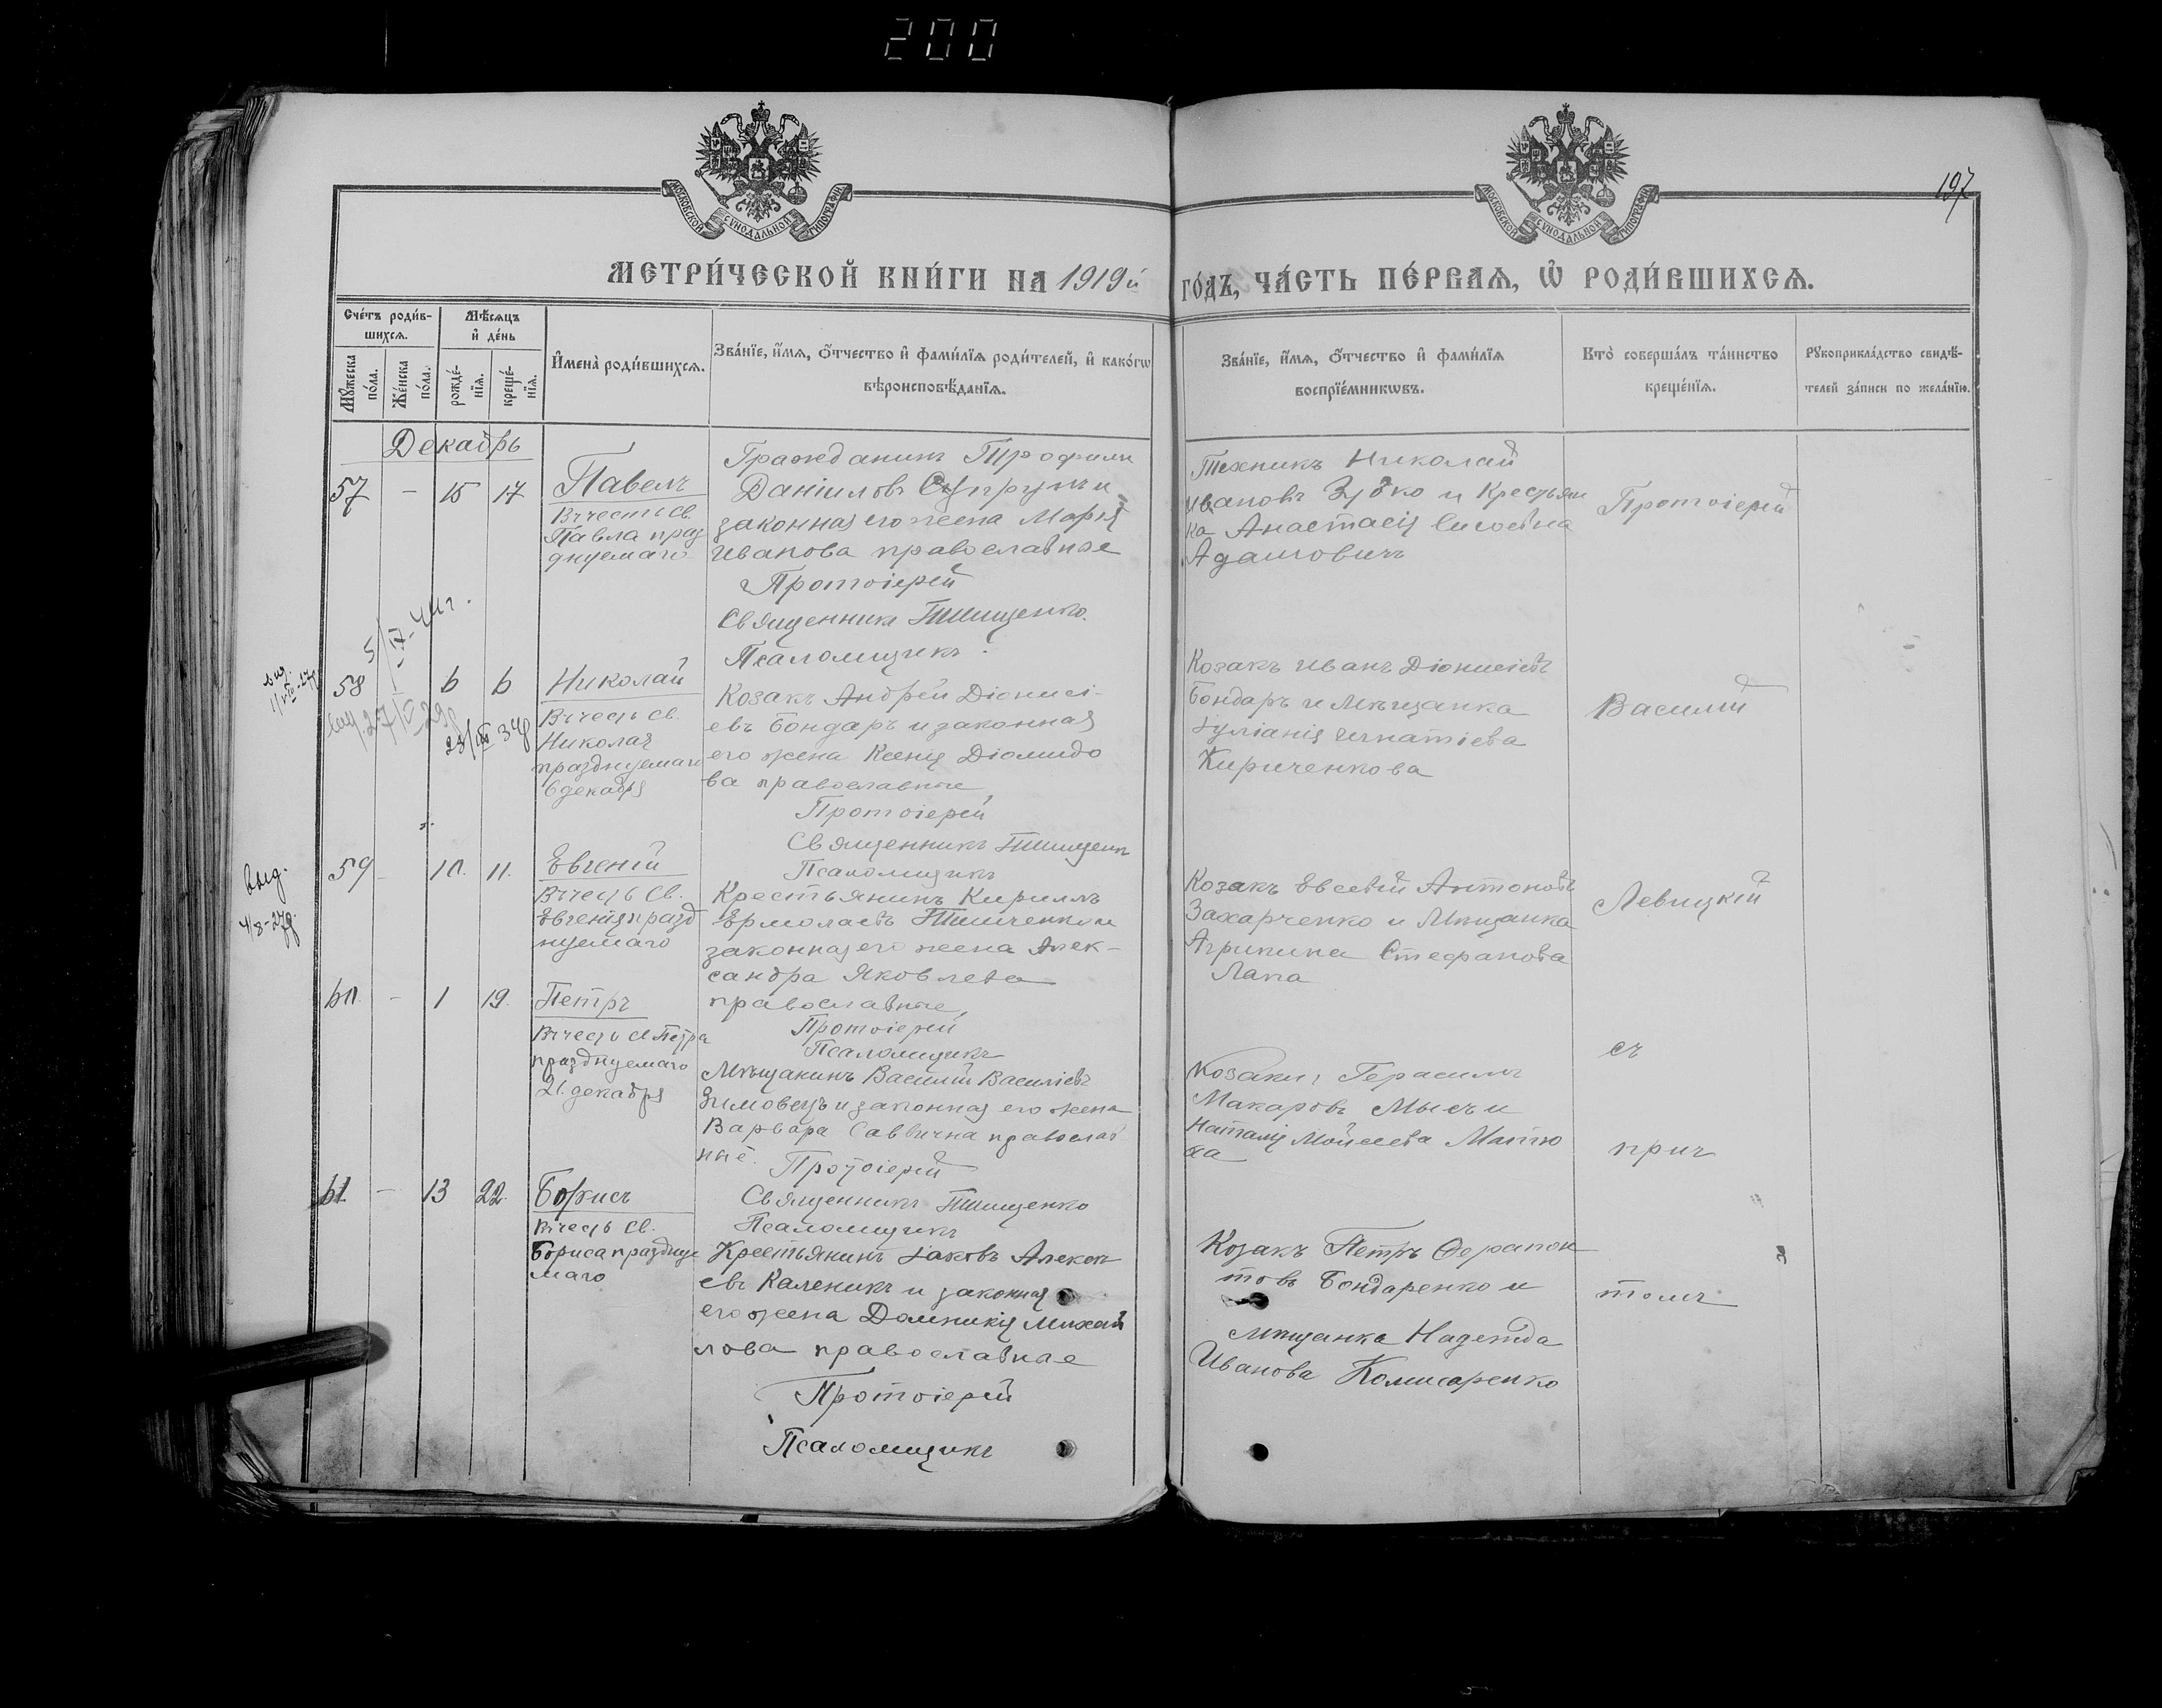 200
197
МОСКОВСКОЙ СѴНОДАЛЬНОЙ ТИПОГРАФІИ
МОСКОВСКОЙ СѴНОДАЛЬНОЙ ТИПОГРАФІИ
МЕТРИ́ЧЕСКОЙ КНИ́ГИ НА 1919й ГО́ДЪ, ЧА́СТЬ ПЕ́РВАѦ, Ѿ РОДИ́ВШИХСѦ.
Сче́тъ роди́в-
шихсѧ.
Мꙋ́жеска по́ла.
Же́нска по́ла.
Мѣ́сѧцъ
и҆ де́нь
рожде́-
нїѧ.
креще́-
нїѧ.
И҆мена̀ роди́вшихсѧ.
Зва́нїе, и҆́мѧ, ѻ҆́тчество и҆ фами́лїѧ роди́телей, и҆ како́гѡ
вѣроисповѣ́данїѧ.
Зва́нїе, и҆́мѧ, ѻ҆́тчество и҆ фами́лїѧ
воспрїе́мникѡвъ.
Кто̀ соверша́лъ та́инство
креще́нїѧ.
Рꙋкоприкла́дство свидѣ́-
телей за́писи по жела́нїю.
Декабрь
57 - 15 17 Павелъ
Въ честь св.
Павла праз
днуемаго
Гражданинъ Трофимъ
Даніиловъ Супрунъ и
законная его жена Марія
Иванова православные
Протоіерей
Священникъ Тимщенко.
Псаломщикъ
Техникъ Николай
Ивановъ Зубко и Крестьян
ка Анастасія Сисоевна
Адамовичъ
Протоіерей
5/IX-44г.
выд.
1/VIII-27г
58 6 6 Николай
23/III 34г
Въ честь св.
Николая
празднуемаго
6 декабря
Козакъ Андрей Діонисі-
евъ Бондарь и законная
его жена Ксенія Діомидо
ва православные
Протоіерей
Священникъ Тимщенк
Псаломщикъ
Козакъ Иванъ Діонисіевъ
Бондарь и Мѣщанка
Іуліанія Игнатіева
Кириченкова
Василій
выд.
4/8-27г.
59 - 10. 11. Евгеній
Въ честь св.
Евгенія празд
нуемаго
Крестьянинъ Кириллъ
Ермолаевъ Тимченко и
законная его жена Алек-
сандра Яковлева
православные
Протоіерей
Псаломщикъ
Козакъ Евсевій Антоновъ
Захарченко и Мѣщанка
Агрипина Стефанова
Лапа
Левицкій
60. - 1 19. Петръ
Въ честь св Петра
празднуемаго
21. декабря
Мѣщанинъ Василій Василіевъ
Зимовецъ и законная его жена
Варвара Саввична православ
ные. Протоіерей
Священникъ Тимщенко
Псаломщикъ
Козаки, Герасимъ
Макаровъ Мысъ и
Наталія Мойсеева
съ
прич
61. - 13 22. Борисъ
Въ честь св.
Бориса праздну
маго
Крестьянинъ Іаковъ Алексѣ
евъ Каленикъ и законная
его жена Домникія Михай
лова православные
Протоіерей
Псаломщикъ
Козакъ Петръ Ферапон
товъ Бондаренко и
мѣщанка Надежда
Иванова Комисаренко
томъ